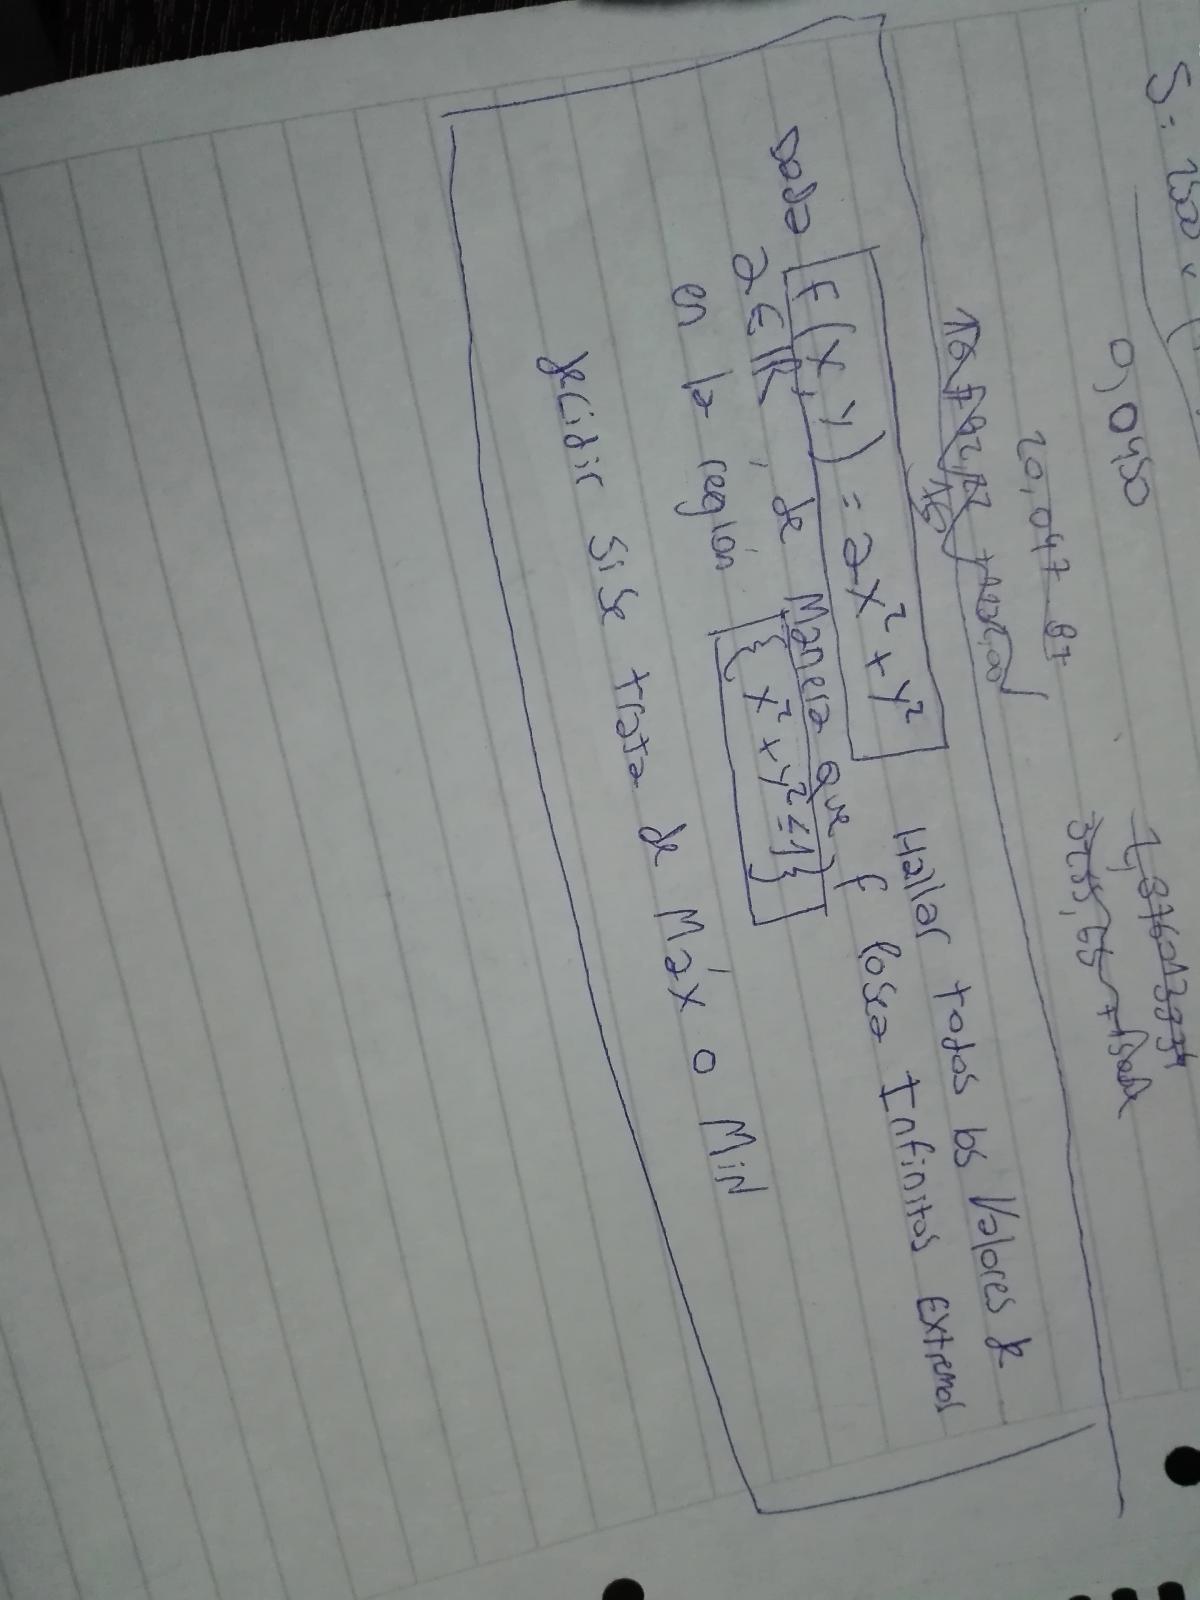 S: 1500
0,0450
20,047 87
Dada F(x, y) = ax² + y² Hallar todos los Valores de
a ∈ ℝ, de Manera que f posea Infinitos Extremos
en la región { x² + y² ≤ 1 }
decidir si se trata de Máx o Min